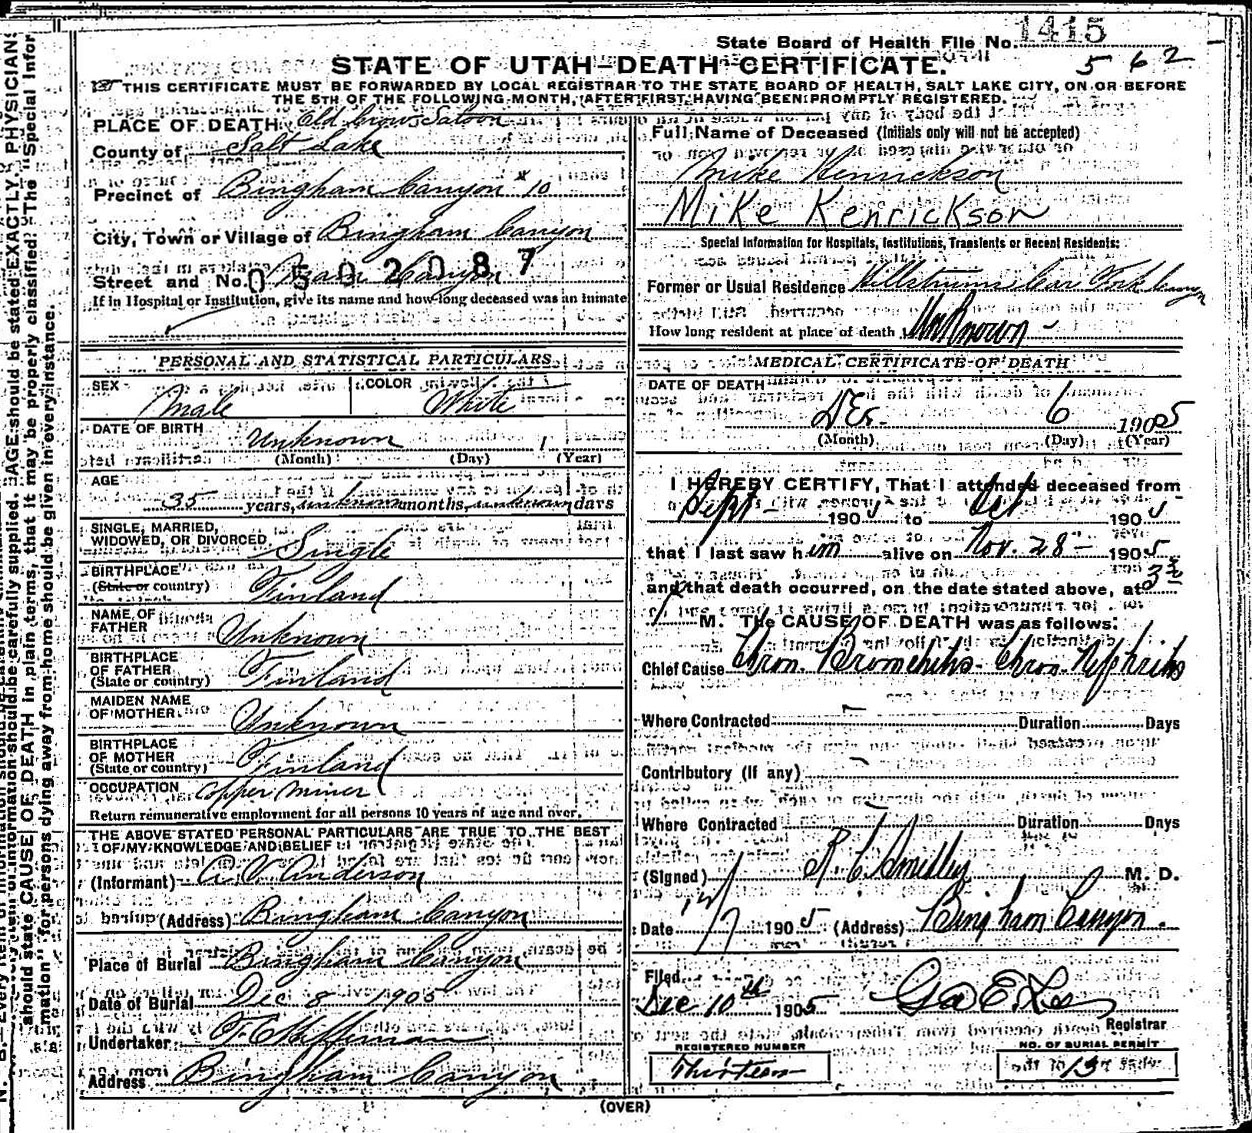 State Board of Health File No. 1415
562
STATE OF UTAH—DEATH CERTIFICATE.
THIS CERTIFICATE MUST BE FORWARDED BY LOCAL REGISTRAR TO THE STATE BOARD OF HEALTH, SALT LAKE CITY, ON OR BEFORE
THE 5TH OF THE FOLLOWING MONTH, AFTER FIRST HAVING BEEN PROMPTLY REGISTERED.
PLACE OF DEATH Old Crow Saloon
County of Salt Lake
Precinct of Bingham Canyon #10
City, Town or Village of Bingham Canyon
Street and No. Main Canyon
0502087
If in Hospital or Institution, give its name and how long deceased was an inmate
PERSONAL AND STATISTICAL PARTICULARS
SEX Male COLOR White
DATE OF BIRTH Unknown 1
(Month) (Day) (Year)
AGE
35 years, unknown months, unknown days
SINGLE, MARRIED,
WIDOWED, OR DIVORCED Single
BIRTHPLACE
(State or country) Finland
NAME OF
FATHER Unknown
BIRTHPLACE
OF FATHER
(State or country) Finland
MAIDEN NAME
OF MOTHER Unknown
BIRTHPLACE
OF MOTHER
(State or country) Finland
OCCUPATION Copper Miner
Return remunerative employment for all persons 10 years of age and over.
THE ABOVE STATED PERSONAL PARTICULARS ARE TRUE TO THE BEST
OF MY KNOWLEDGE AND BELIEF
(Informant) A. V. Anderson
(Address) Bingham Canyon
Place of Burial Bingham Canyon
Date of Burial Dec 8 1905
Undertaker
Address Bingham Canyon
Full Name of Deceased (Initials only will not be accepted)
Mike Henrickson
Mike Kenrickson
Special Information for Hospitals, Institutions, Transients or Recent Residents:
Former or Usual Residence
How long resident at place of death Unknown -
MEDICAL CERTIFICATE OF DEATH
DATE OF DEATH
Dec. 6 1905
(Month) (Day) (Year)
I HEREBY CERTIFY, That I attended deceased from
Sept - 1905 to Oct 1905
that I last saw him alive on Nov. 28 - 1905
and that death occurred, on the date stated above, at 3
M. The CAUSE OF DEATH was as follows:
Chief Cause Chron. Bronchitis - Chron. Nephritis
Where Contracted Duration Days
Contributory (If any)
Where Contracted Duration Days
(Signed) R. C. Smedley M. D.
Date 12/7 1905 (Address) Bingham Canyon.
Filed
Dec 10th 1905 Geo E. Lee
Registrar
REGISTERED NUMBER
Thirteen
NO. OF BURIAL PERMIT
13
(OVER)
should state CAUSE OF DEATH in plain terms, that it may be properly classified. The "Special Infor-
mation" for persons dying away from home should be given in every instance.